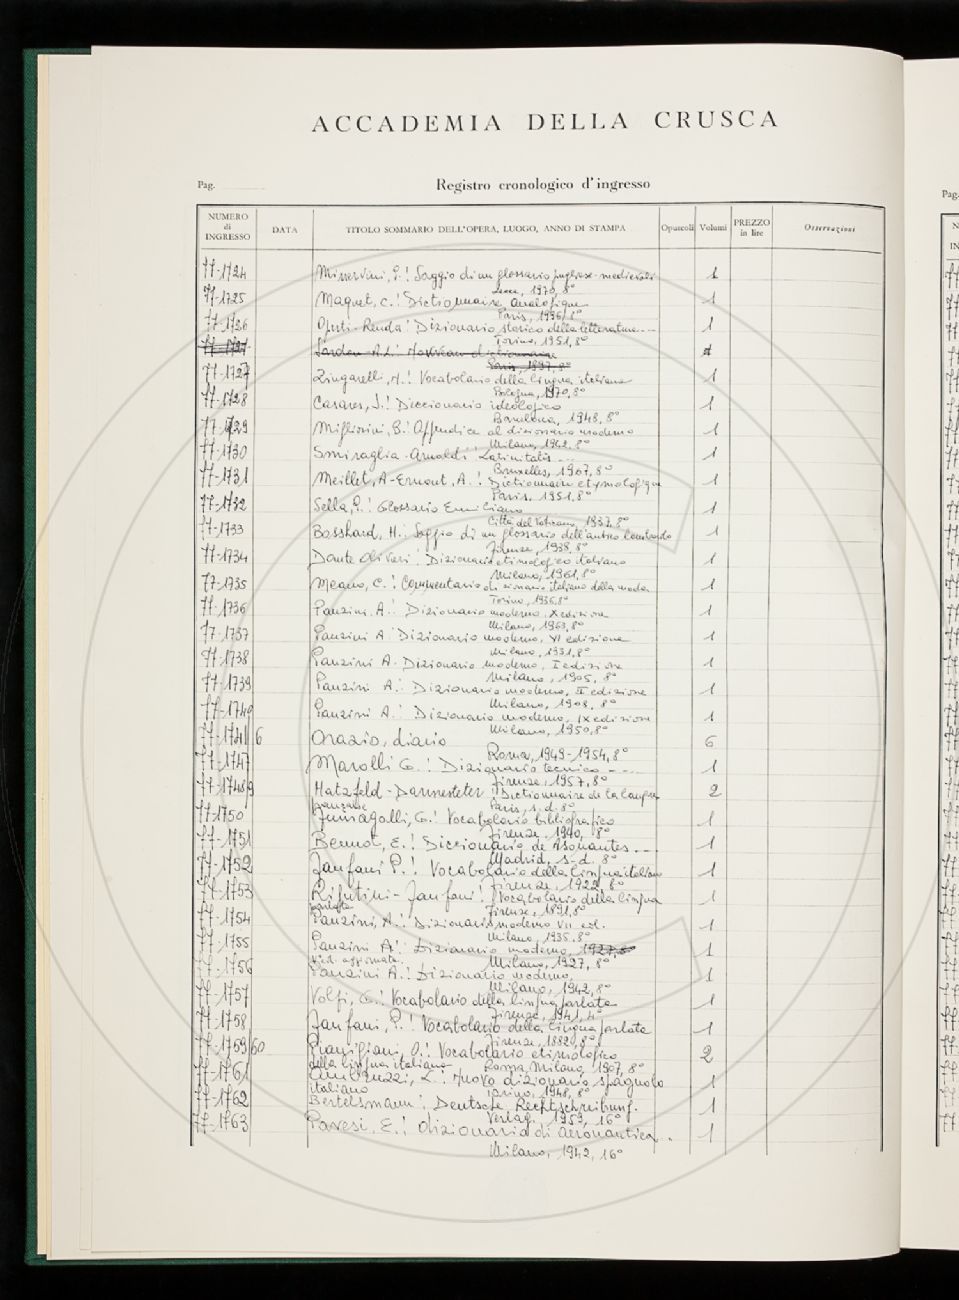 ACCADEMIA DELLA CRUSCA
Pag.
Registro cronologico d'ingresso
NUMERO di INGRESSO DATA TITOLO SOMMARIO DELL'OPERA, LUOGO, ANNO DI STAMPA Opuscoli Volumi PREZZO in lire Osservazioni
77-1724 Minervini, P.: Saggio di un glossario pugliese-medievali 1
Lecce, 1970, 8°
77-1725 Maquet, C.: Dictionnaire analogique 1
Paris, 1936, 8°
77-1726 Renda: Dizionario storico della letteratura--- 1
Torino, 1951, 8°
77-1727 A.L.: Nouveau dictionnaire 1
Paris, 1897, 8°
77-1727 Zingarelli, N.: Vocabolario della lingua italiana 1
Bologna, 1970, 8°
77-1728 Casares, J.: Diccionario ideologico 1
Barcelona, 1948, 8°
77-1729 Migliorini, B.: Appendice al dizionario moderno 1
Milano, 1942, 8°
77-1730 Smiraglia-Arnaldi: Latinitatis --- 1
Bruxelles, 1967, 8°
77-1731 Meillet, A-Ernout, A.: Dictionnaire etymologique 1
Paris, 1951, 8°
77-1732 Sella, P.: Glossario Emiliano 1
Città del Vaticano, 1937, 8°
77-1733 Bosshard, H.: Saggio di un glossario dell'antico lombardo 1
Firenze, 1938, 8°
77-1734 Dante Olivieri: Dizionario etimologico italiano 1
Milano, 1961, 8°
77-1735 Meano, C.: Commentario dizionario italiano della moda 1
Torino, 1936, 8°
77-1736 Panzini, A.: Dizionario moderno, X edizione 1
Milano, 1963, 8°
77-1737 Panzini A. Dizionario moderno, VI edizione 1
Milano, 1931, 8°
77-1738 Panzini A. Dizionario moderno, I edizione 1
Milano, 1905, 8°
77-1739 Panzini A.: Dizionario moderno, II edizione 1
Milano, 1908, 8°
77-1740 Panzini A.: Dizionario moderno, IX edizione 1
Milano, 1950, 8°
77-1741/6 Orazio, diario 6
Roma, 1949-1954, 8°
77-1747 Marolli G.: Dizionario tecnico --- 1
Firenze, 1957, 8°
77-1748/9 Hatzfeld-Darmesteter: Dictionnaire de la langue 2
française Paris, s.d. 8°
77-1750 Fumagalli, G.: Vocabolario bibliografico 1
Firenze, 1940, 8°
77-1751 Benot, E.: Diccionario de Asonantes --- 1
Madrid, s.d. 8°
77-1752 Fanfani P.: Vocabolario della lingua italiana 1
Firenze, 1922, 8°
77-1753 Rigutini-Fanfani: Vocabolario della lingua 1
parlata Firenze, 1891, 8°
77-1754 Panzini, A.: Dizionario moderno VII ed. 1
Milano, 1935, 8°
77-1755 Panzini A.: Dizionario moderno, 1927, 8° 1
ed. aggiornata. Milano, 1927, 8°
77-1756 Panzini A.: Dizionario moderno, 1
Milano, 1942, 8°
77-1757 Volpi, G.: Vocabolario della lingua parlata 1
Firenze, 1941, 4°
77-1758 Fanfani, P.: Vocabolario della lingua parlata 1
Firenze, 1882, 8°
77-1759/60 Pianigiani, O.: Vocabolario etimologico 2
della lingua italiana Roma, Milano, 1907, 8°
77-1761 L.: Nuovo dizionario spagnolo 1
italiano Torino, 1948, 8°
77-1762 Bertelsmann: Deutsche Rechtschreibung. 1
Verlag, 1959, 16°
77-1763 Pavesi, E.: dizionario di aeronautica.. 1
Milano, 1942, 16°
Pag.